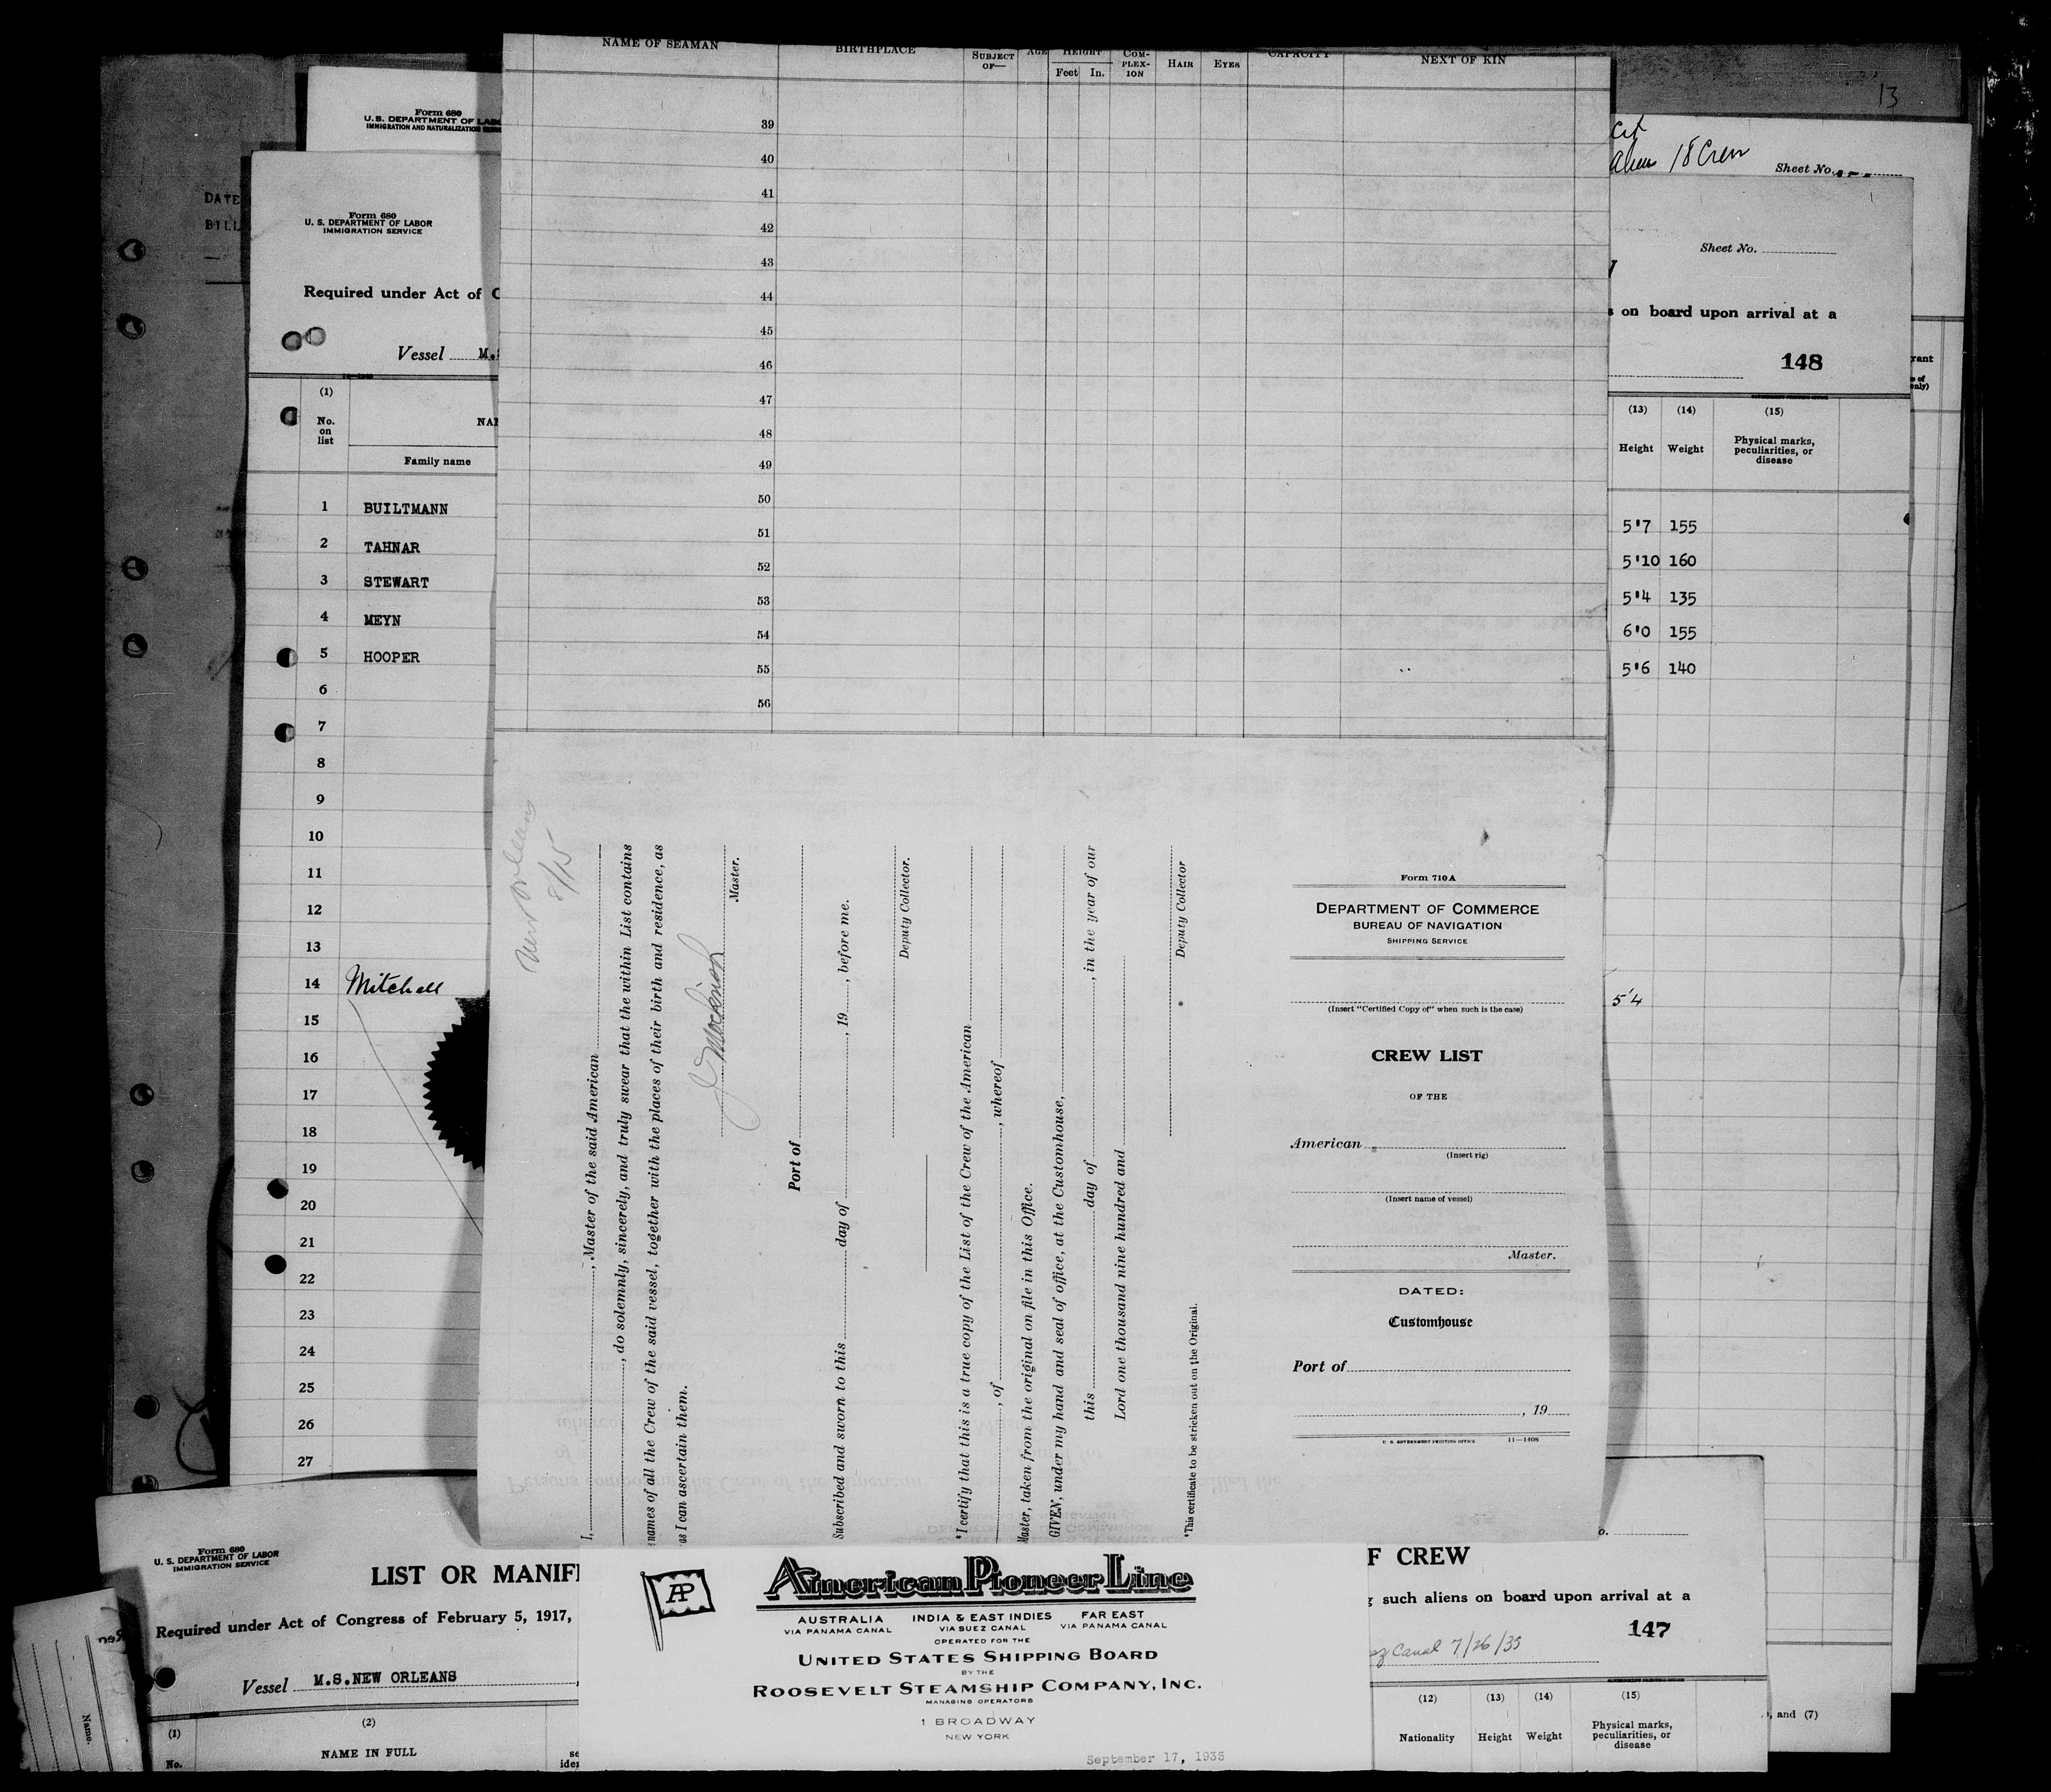 13
18 Crew
Sheet No.
Form 680
U.S. DEPARTMENT OF LABO
IMMIGRATION AND NATURALIZATION SERV
DATE
BILL
Form 680
U. S. DEPARTMENT OF LABOR
IMMIGRATION SERVICE
Required under Act of C
Vessel M.S
(1)
No.
on
list
NAM
Family name
1 BUILTMANN
2 TAHNAR
3 STEWART
4 MEYN
5 HOOPER
6
7
8
9
10
11
12
13
14 Mitchell
15
16
17
18
19
20
21
22
23
24
25
26
27
Sheet No.
s on board upon arrival at a
148
(13) (14) (15)
Height Weight Physical marks,
peculiarities, or
disease
5'7 155
5'10 160
5'4 135
6'0 155
5'6 140
5'4
rant
only)
NAME OF SEAMAN BIRTHPLACE SUBJECT OF— AGE HEIGHT Feet In. COM-PLEX-ION HAIR EYES CAPACITY NEXT OF KIN
39
40
41
42
43
44
45
46
47
48
49
50
51
52
53
54
55
56
New Orleans
8/15
I, , Master of the said American
, do solemnly, sincerely, and truly swear that the within List contains
names of all the Crew of the said vessel, together with the places of their birth and residence, as
as I can ascertain them.
Master.
Port of
Subscribed and sworn to this day of , 19 , before me.
Deputy Collector.
*I certify that this is a true copy of the List of the Crew of the American
, of , whereof
Master, taken from the original on file in this Office.
GIVEN, under my hand and seal of office, at the Customhouse,
this day of , in the year of our
Lord one thousand nine hundred and
Deputy Collector
*This certificate to be stricken out on the Original.
Form 710A
DEPARTMENT OF COMMERCE
BUREAU OF NAVIGATION
SHIPPING SERVICE
(Insert "Certified Copy of" when such is the case)
CREW LIST
OF THE
American
(Insert rig)
(Insert name of vessel)
Master.
DATED:
Customhouse
Port of
, 19
U. S. GOVERNMENT PRINTING OFFICE 11—1408
Form 680
U. S. DEPARTMENT OF LABOR
IMMIGRATION SERVICE
LIST OR MANIF
Required under Act of Congress of February 5, 1917,
Vessel M.S.NEW ORLEANS
(1) (2)
No. NAME IN FULL
Name.
AP
American Pioneer Line
AUSTRALIA
VIA PANAMA CANAL
INDIA & EAST INDIES
VIA SUEZ CANAL
FAR EAST
VIA PANAMA CANAL
OPERATED FOR THE
UNITED STATES SHIPPING BOARD
BY THE
ROOSEVELT STEAMSHIP COMPANY, INC.
MANAGING OPERATORS
1 BROADWAY
NEW YORK
September 17, 1935
F CREW
g such aliens on board upon arrival at a
147
Canal 7/26/35
(12) (13) (14) (15)
Nationality Height Weight Physical marks,
peculiarities, or
disease
, and (7)